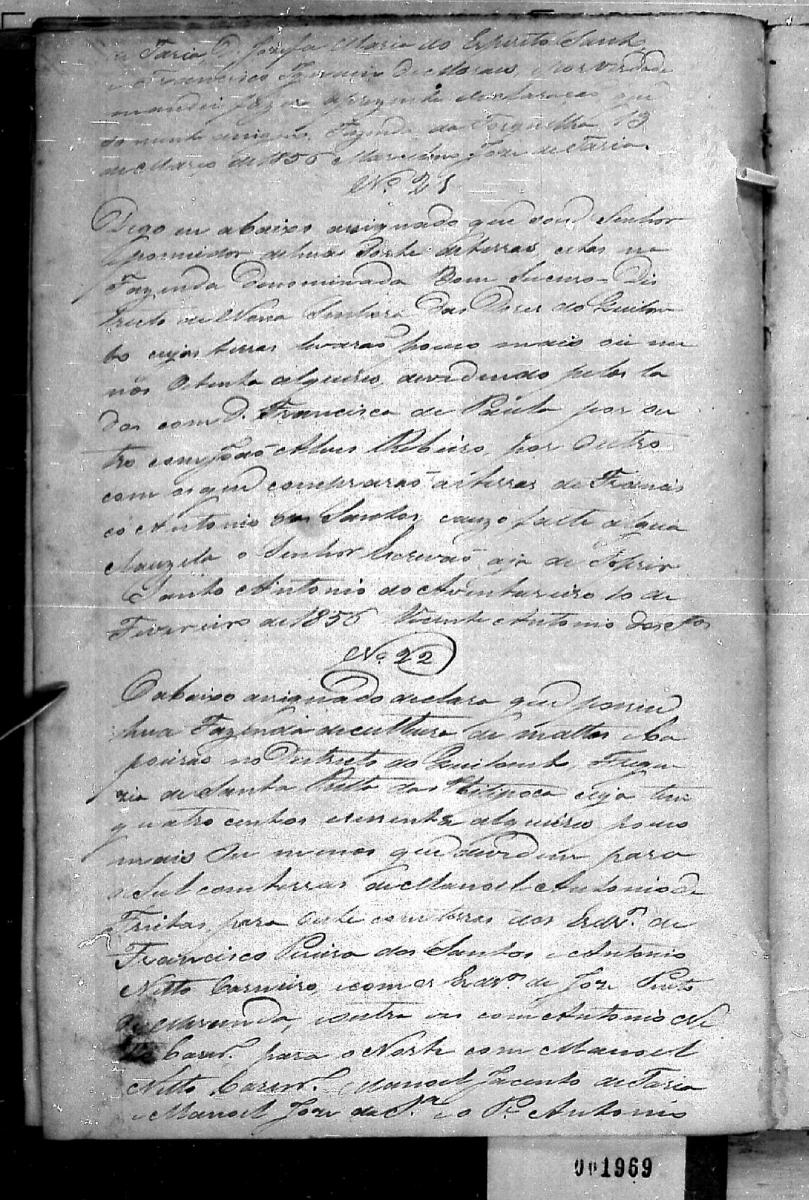 de Faria, D. Josefa Maria do Espirito Santo
e Francisco Ignacio de Morais, e por verdade
mandei fazer a prezente declaração que
somente assigno. Fazenda da Forquilha 13
de Março de 1856 Marcelino Joze de Faria.
Nº 21
Digo eu abaixo assignado que sou Senhor
e possuidor de hua parte de terras citas na
Fazenda denominada Bom Sucesso Dis
tricto de Nossa Senhora das Dores do Quilom
bo cujas terras levarão pouco mais ou me
nos oitenta alqueires, devidindo pelos la
dos com D. Francisca de Paula por ou
tro com João Alves Ribeiro, por outro
com os que comprarão as terras de Francis
co Antonio dos Santos, cauzo falte algua
Clauzula o Senhor Escrivão aja de Soprir
Santo Antonio do Aventureiro 10 de
Fevereiro de 1856 Vicente Antonio dos Stos
Nº 22
O abaixo assignado declara que possue
hua Fazenda de cultura de mattos e Ca
poeirão no Districto do Quilombo, Fregue
zia de Santa Ritta da Ibitipoca cuja tem
quatro centos e secenta alqueires pouco
mais ou menos que devidem para
o Sul com terras de Manoel Antonio de
Freitas, para Oeste com terras dos Erdros. de
Francisco Pereira dos Santos e Antonio
Netto Carneiro, e com os Erdros de Joze Pinto
de Miranda, e outra ves com Antonio Ne
tto Carnro. para o Norte com Manoel
Netto Carnro. Manoel Jacinto de Faria
e Manoel Joze de e o Pe. Antonio
001969